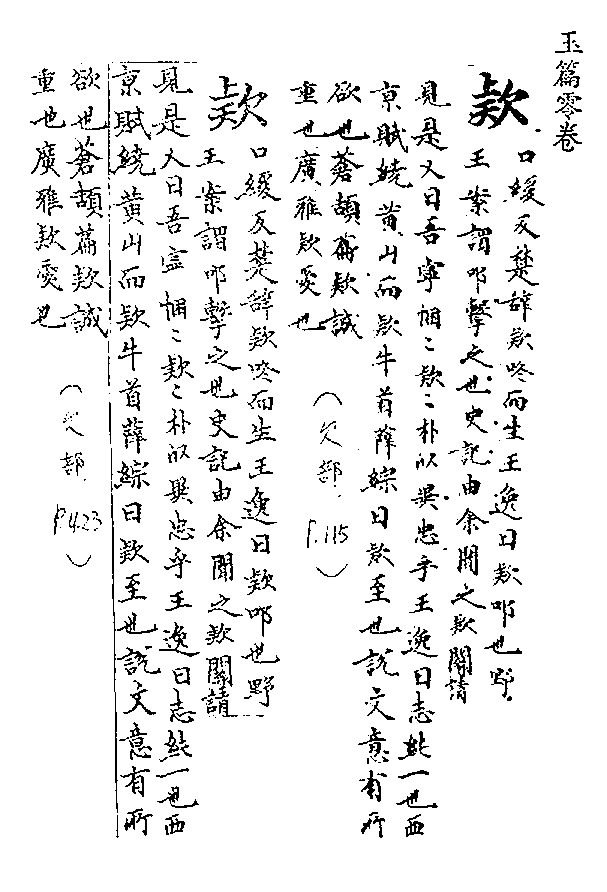 玉篇零卷
欵
口緩反楚辞欵吣而生王逸曰欵叩也野
王案謂叩擊之也史記由余聞之欵關請
見是又曰吾寧悃〻欵〻朴以㒸忠乎王逸曰志純一也西
京賦繞黄山而欵牛首薛綜曰欵至也説文意有所
欲也蒼頡篇欵誠
重也廣雅欵愛也
（欠部.
p.115）
欵
口緩反楚辞欵吣而生王逸曰欵叩也野
王案謂叩擊之也史記由余聞之欵關請
見是又曰吾寧悃〻欵〻朴以㒸忠乎王逸曰志純一也西
京賦繞黄山而欵牛首薛綜曰欵至也説文意有所
欲也蒼頡篇欵誠
重也廣雅欵愛也
（欠部.
p.423）